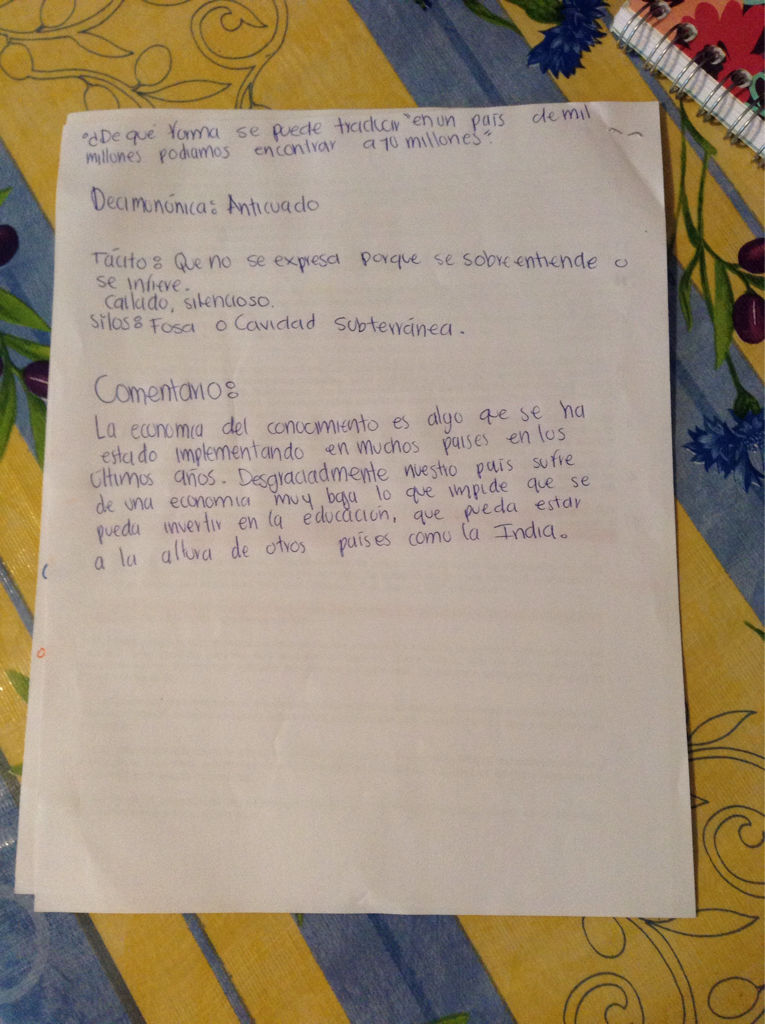 °¿De qué forma se puede traducir "en un país de mil
millones podíamos encontrar a 70 millones".
Decimonónica: Anticuado
Tácito: Que no se expresa porque se sobreentiende o
se infiere.
Callado, silencioso.
Silos: Fosa o Cavidad subterránea.
Comentario:
La economía del conocimiento es algo que se ha
estado implementando en muchos países en los
últimos años. Desgraciadmente nuestro país sufre
de una economía muy baja lo que impide que se
pueda invertir en la educación, que pueda estar
a la altura de otros países como la India.